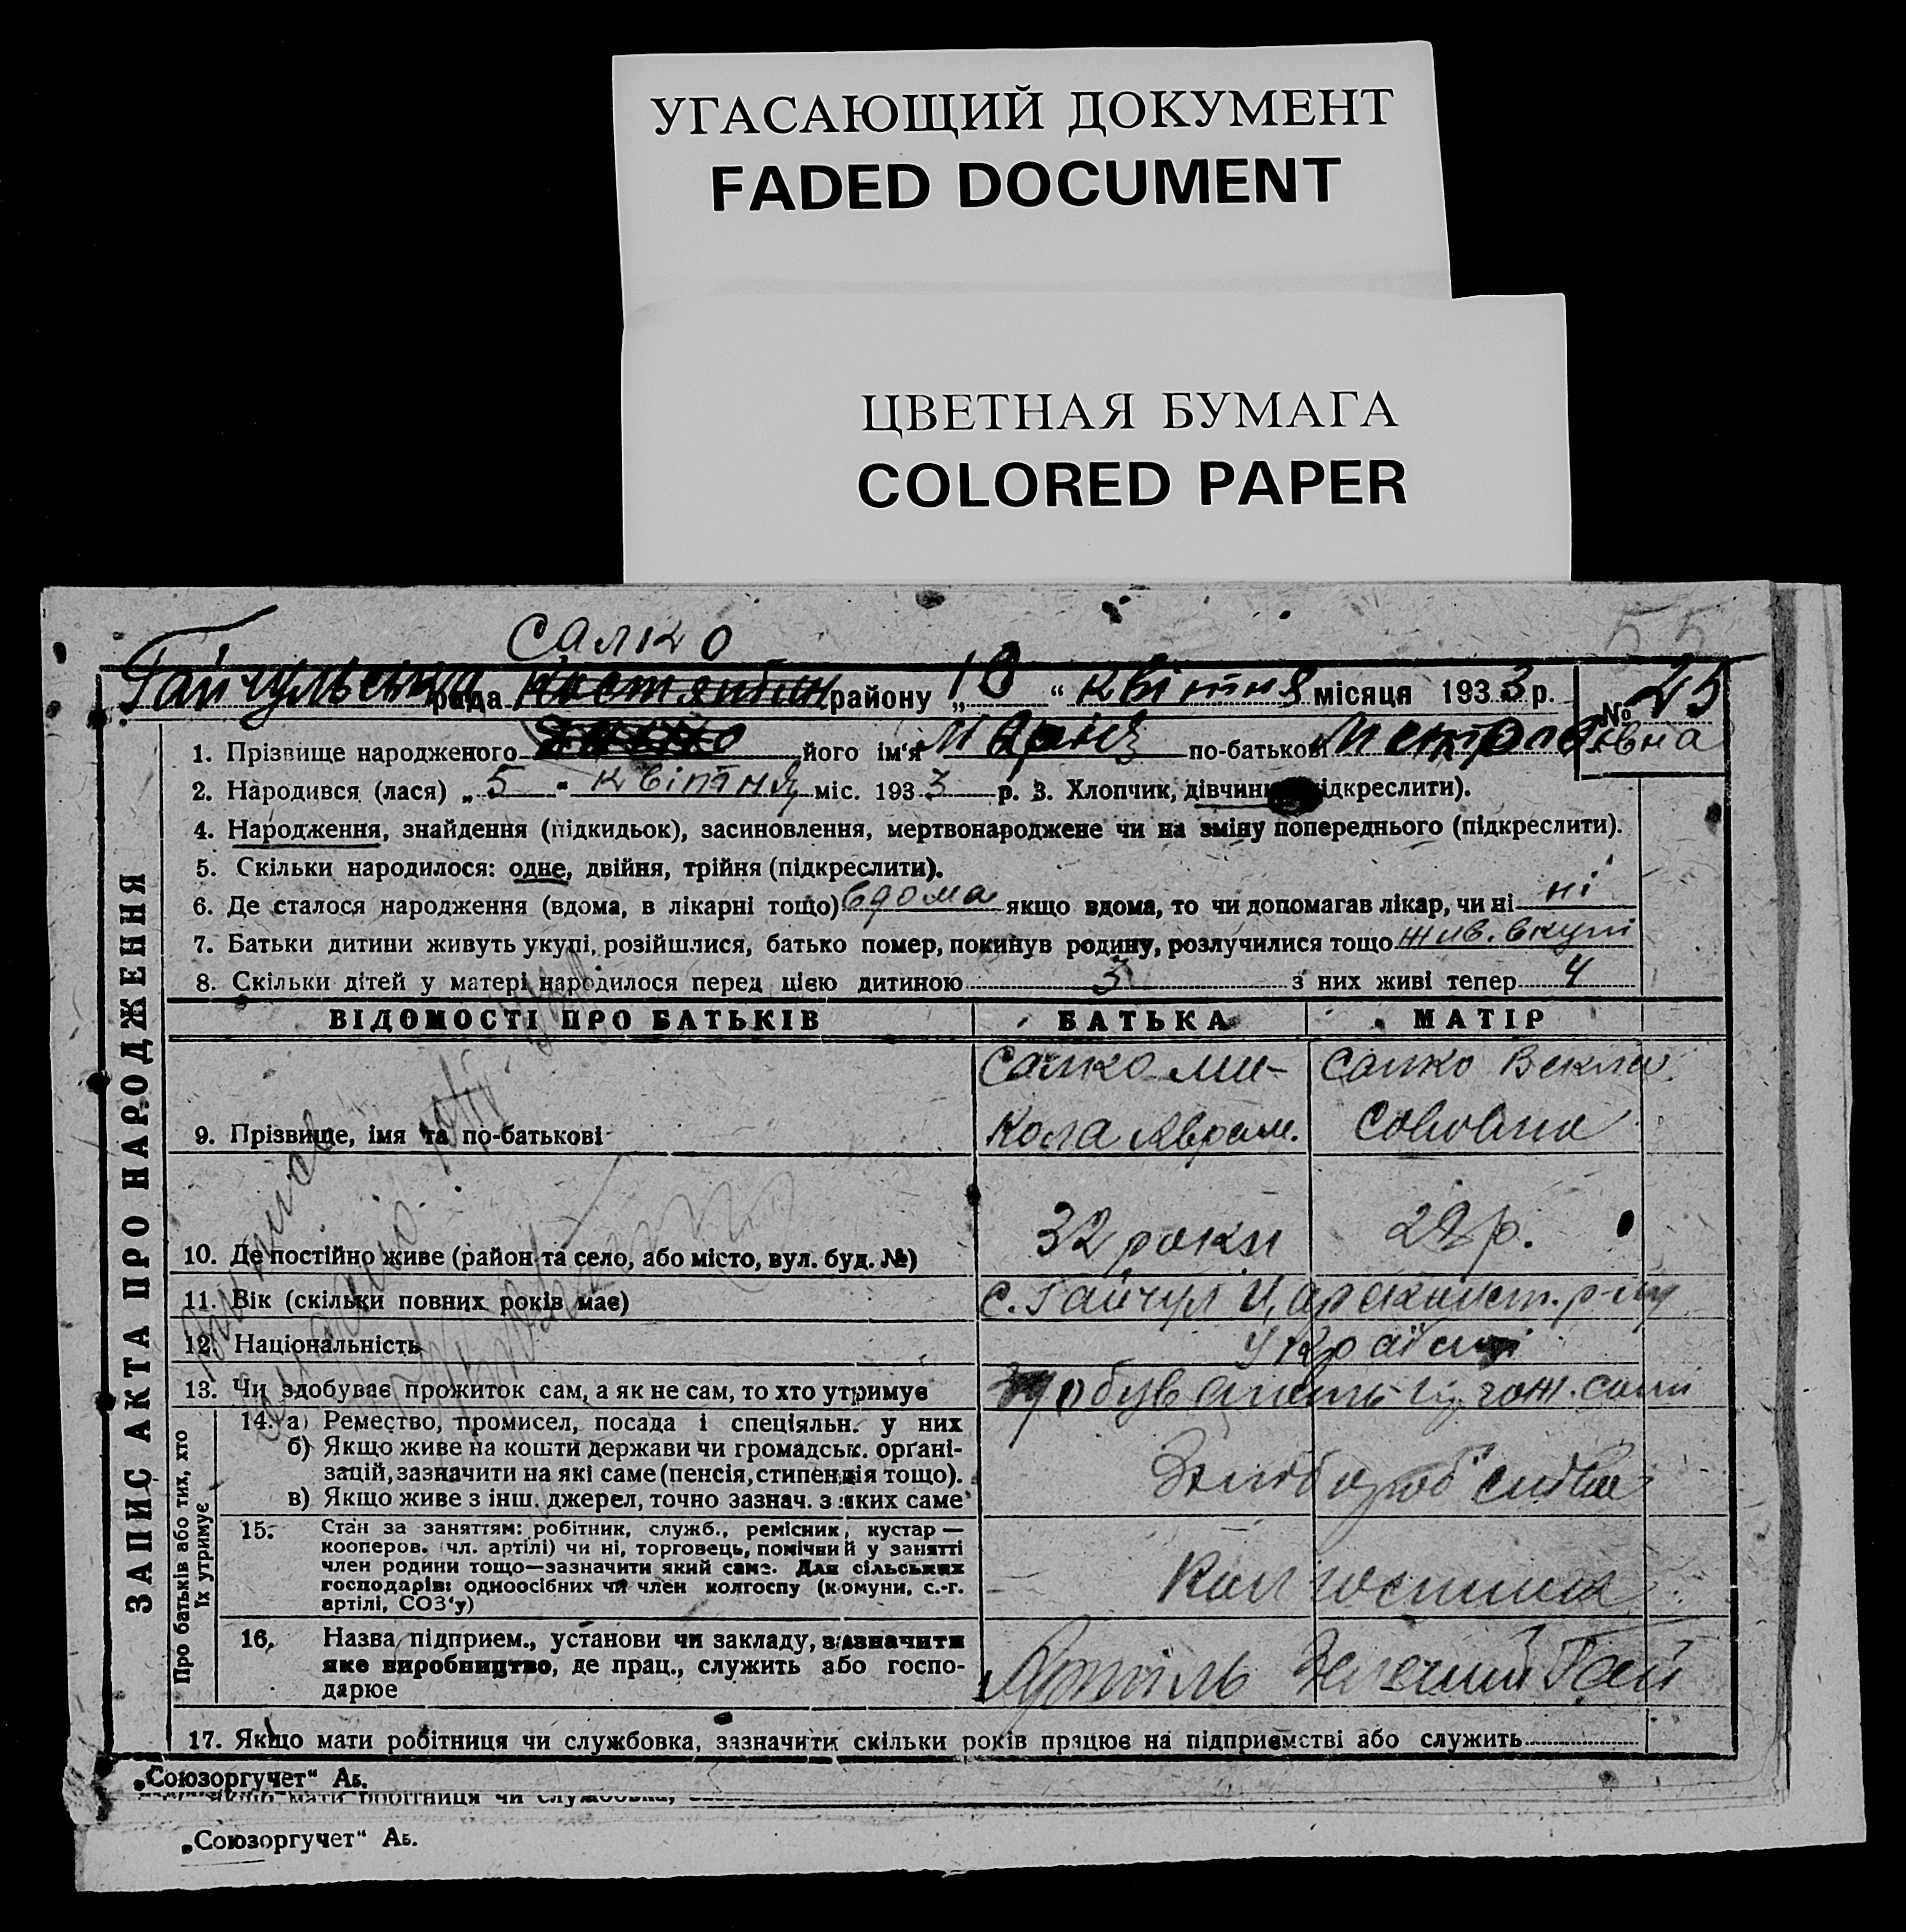 УГАСАЮЩИЙ ДОКУМЕНТ
FADED DOCUMENT
ЦВЕТНАЯ БУМАГА
COLORED PAPER
55
Салко
Гайчульська рада району „10“ квітня місяця 1933 р. № 25
1. Прізвище народженого його ім'я Марія по-батькові
2. Народився (лася) „5“ квітня міс. 1933 р. 3. Хлопчик, дівчин ідкреслити).
4. Народження, знайдення (підкидьок), засиновлення, мертвонароджене чи на зміну попереднього (підкреслити).
5. Скільки народилося: одне, двійня, трійня (підкреслити).
6. Де сталося народження (вдома, в лікарні тощо) вдома якщо вдома, то чи допомагав лікар, чи ні ні
7. Батьки дитини живуть укупі, розійшлися, батько помер, покинув родину, розлучилися тощо жив. вкупі
8. Скільки дітей у матері народилося перед цією дитиною 3 з них живі тепер 4
ЗАПИС АКТА ПРО НАРОДЖЕННЯ
ВІДОМОСТІ ПРО БАТЬКІВ БАТЬКА МАТІР
Салко Ми- Салко Векла
9. Прізвище, імя та по-батькові кола Аврам.
10. Де постійно живе (район та село, або місто, вул. буд. №) 32 роки р.
11. Вік (скільки повних років має) с. Гайчул
12. Національність
13. Чи здобуває прожиток сам, а як не сам, то хто утримує
Про батьків або тих, хто їх утримує
14. а) Ремество, промисел, посада і спеціяльн. у них
б) Якщо живе на кошти держави чи громадськ. органі-
зацій, зазначити на які саме (пенсія, стипендія тощо).
в) Якщо живе з інш. джерел, точно зазнач. з яких саме
15. Стан за заняттям: робітник, служб., ремісник, кустар —
кооперов. (чл. артілі) чи ні, торговець, помічний у занятті
член родини тощо—зазначити який саме. Для сільських
господарів: одноосібних чи член колгоспу (комуни, с.-г.
артілі, СОЗ'у)
16. Назва підприєм., установи чи закладу, зазначити
яке виробництво, де прац., служить або госпо-
дарює
Артіль Гай
17. Якщо мати робітниця чи службовка, зазначити скільки років працює на підприємстві або служить
„Союзоргучет“ Аб.
якщо мати робітниця чи службовка,
„Союзоргучет“ Аб.